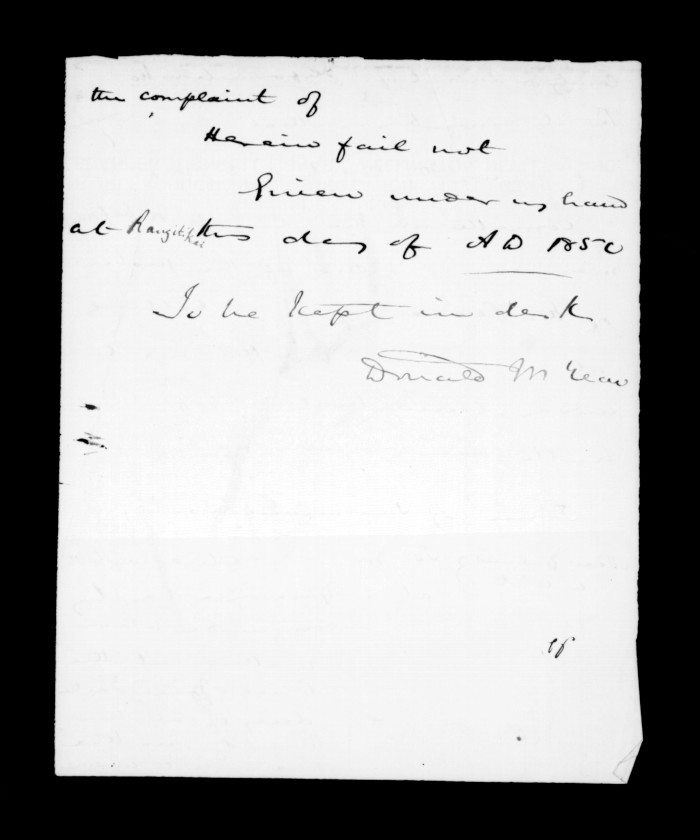 the complaint of
Herein fail not
Given under my hand
at Rangitikei this day of A D 1850
To be kept in desk
Donald McLean